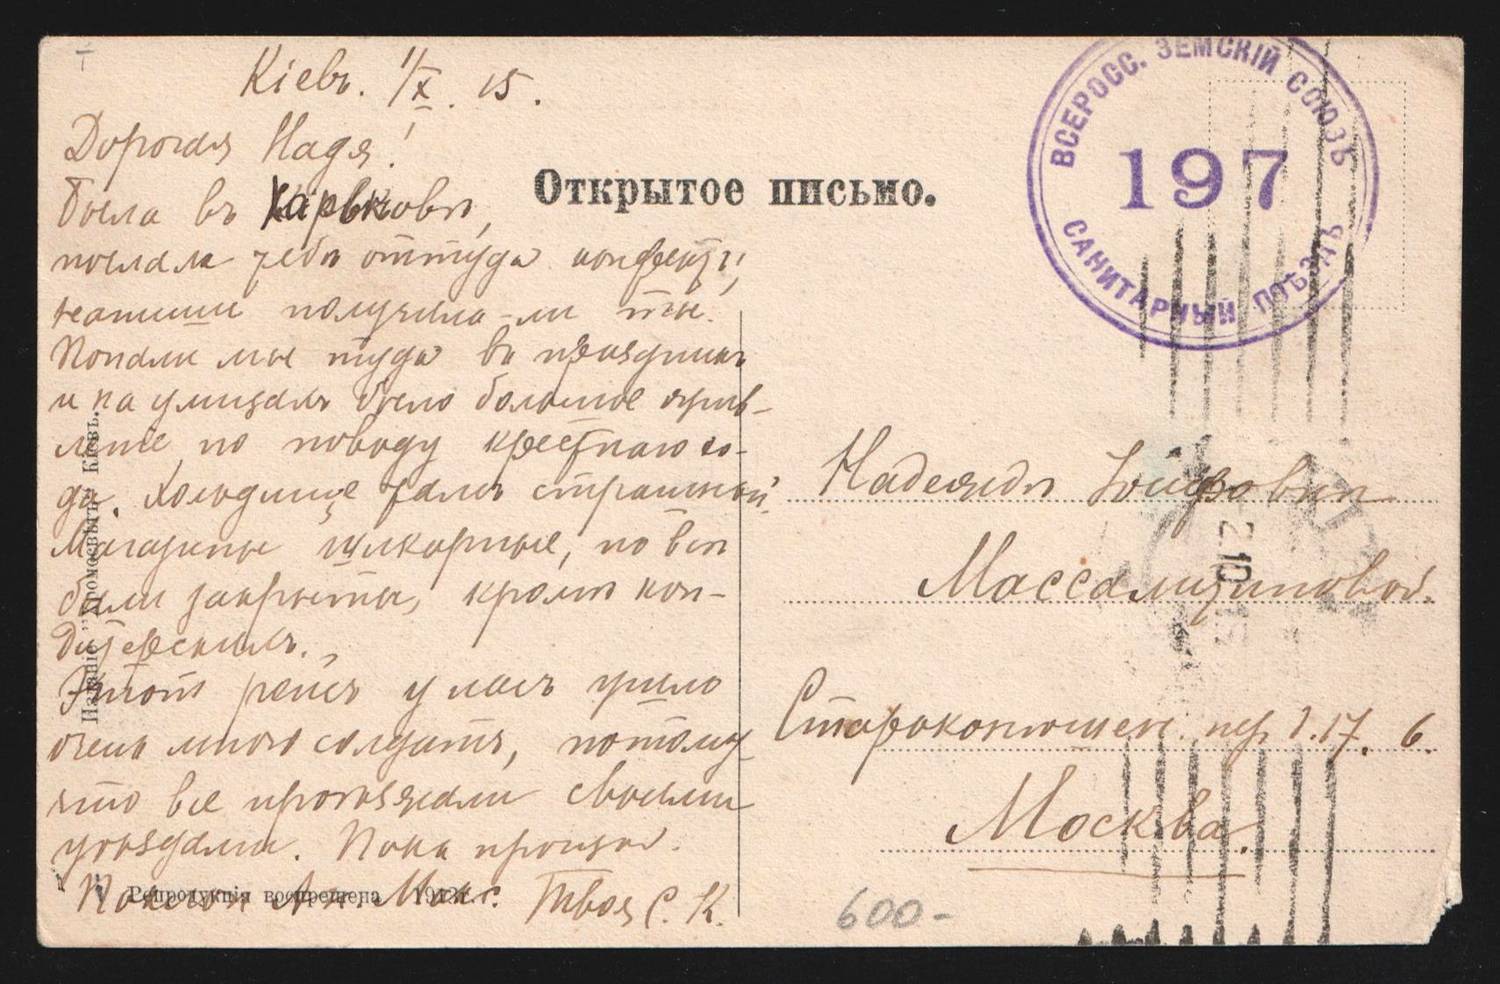 Кіевъ. 1/X. 15.
Дорогая Надя!
Была въ Харьковѣ,
послала тебѣ оттуда конфекты,
напиши получила-ли ты.
Попали мы туда въ праздникъ
и на улицахъ было большое
по поводу крестнаго хо-
да. Холодище тамъ страшный.
Магазины шикарные, но всѣ
были закрыты, кромѣ кон-
дитерскихъ.
Этотъ рейсъ у насъ
очень много солдатъ, потому
что все проѣзжали своими
уѣздами. Пока прощай.
Поклон Ал. Макс. Твоя С. К.
Открытое письмо.
ВСЕРОСС. ЗЕМСКІЙ СОЮЗЪ
197
САНИТАРНЫЙ ПОѢЗДЪ
Надеждѣ Іосифовнѣ
Массалитиновой.
2 10 15
Староконюшен. пер. д. 17. 6.
Москва.
600-
Изданіе "Промосвѣтъ" Кіевъ.
Репродукція воспрещена 1913 г.